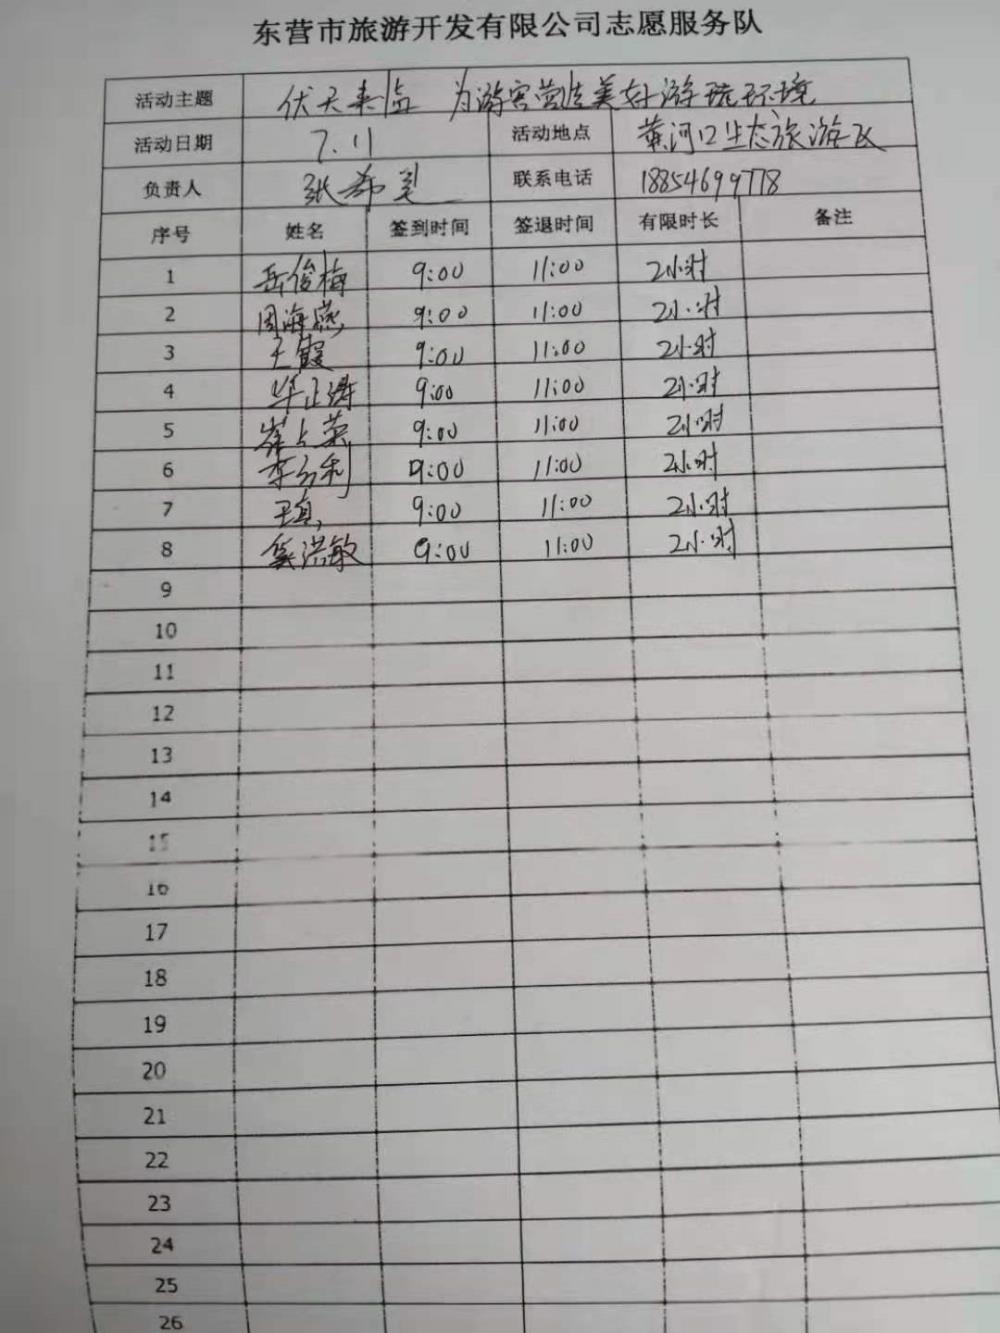 东营市旅游开发有限公司志愿服务队
活动主题 伏天来临 为游客营造美好游玩环境
活动日期 7.11 活动地点 黄河口生态旅游区
负责人 张希 联系电话 18854699778
序号 姓名 签到时间 签退时间 有限时长 备注
1 岳俊梅 9:00 11:00 2小时
2 周海燕 9:00 11:00 2小时
3 王霞 9:00 11:00 2小时
4 9:00 11:00 2小时
5 崔占荣 9:00 11:00 2小时
6 9:00 11:00 2小时
7 9:00 11:00 2小时
8 洪敏 9:00 11:00 2小时
9
10
11
12
13
14
15
16
17
18
19
20
21
22
23
24
25
26